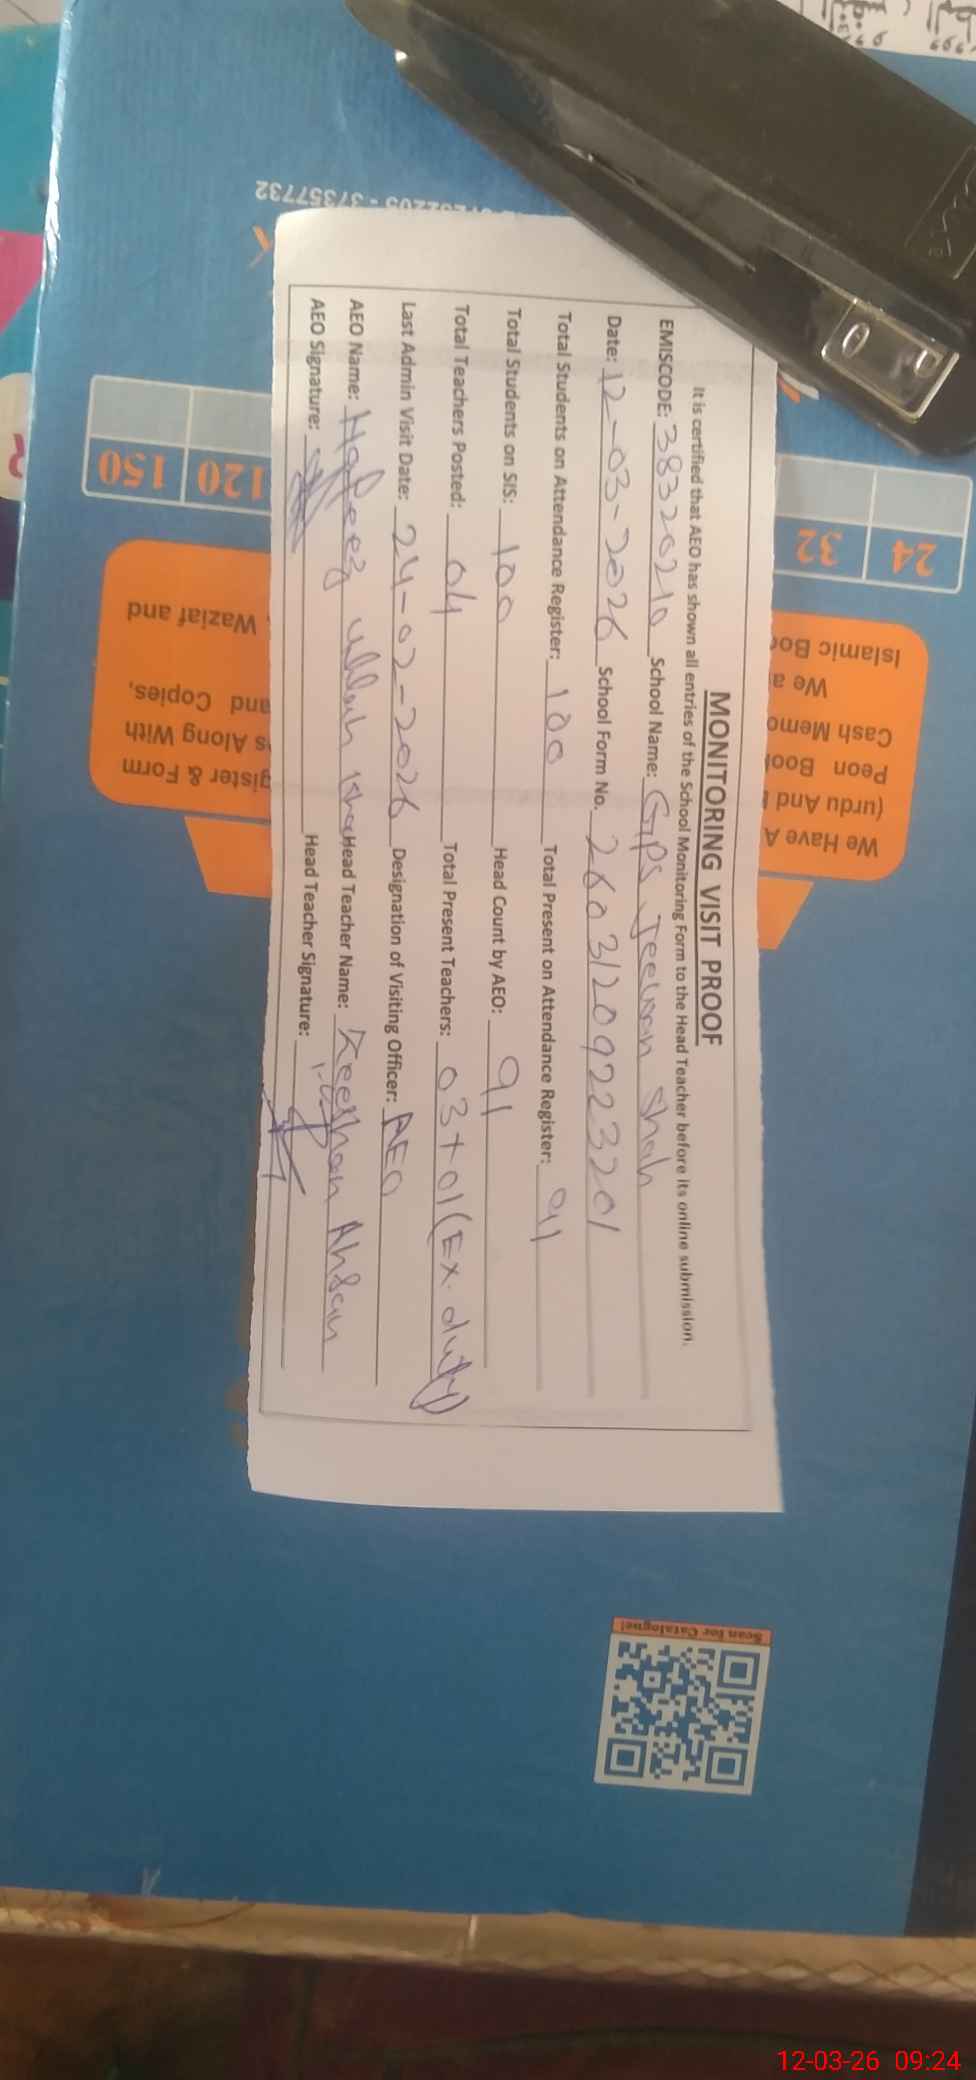 MONITORING VISIT PROOF
It is certified that AEO has shown all entries of the School Monitoring Form to the Head Teacher before its online submission.
EMISCODE: 38320210 School Name: GPS Jeewan Shah
Date: 12-03-2026 School Form No. 26031209223201
Total Students on Attendance Register: 100 Total Present on Attendance Register: 91
Total Students on SIS: 100 Head Count by AEO: 91
Total Teachers Posted: 04 Total Present Teachers: 03+01(Ex. duty)
Last Admin Visit Date: 24-02-2026 Designation of Visiting Officer: AEO
AEO Name: Hafeez Ullah Khan Head Teacher Name: Zeeshan Ahsan
AEO Signature: Head Teacher Signature:
37357732
24 32
120 150
We Have A
(urdu And
Peon Boo
Cash Memo
We a
Islamic Boo
gister & Form
s Along With
and Copies,
Waziaf and
Scan for Catalogue!
12-03-26 09:24